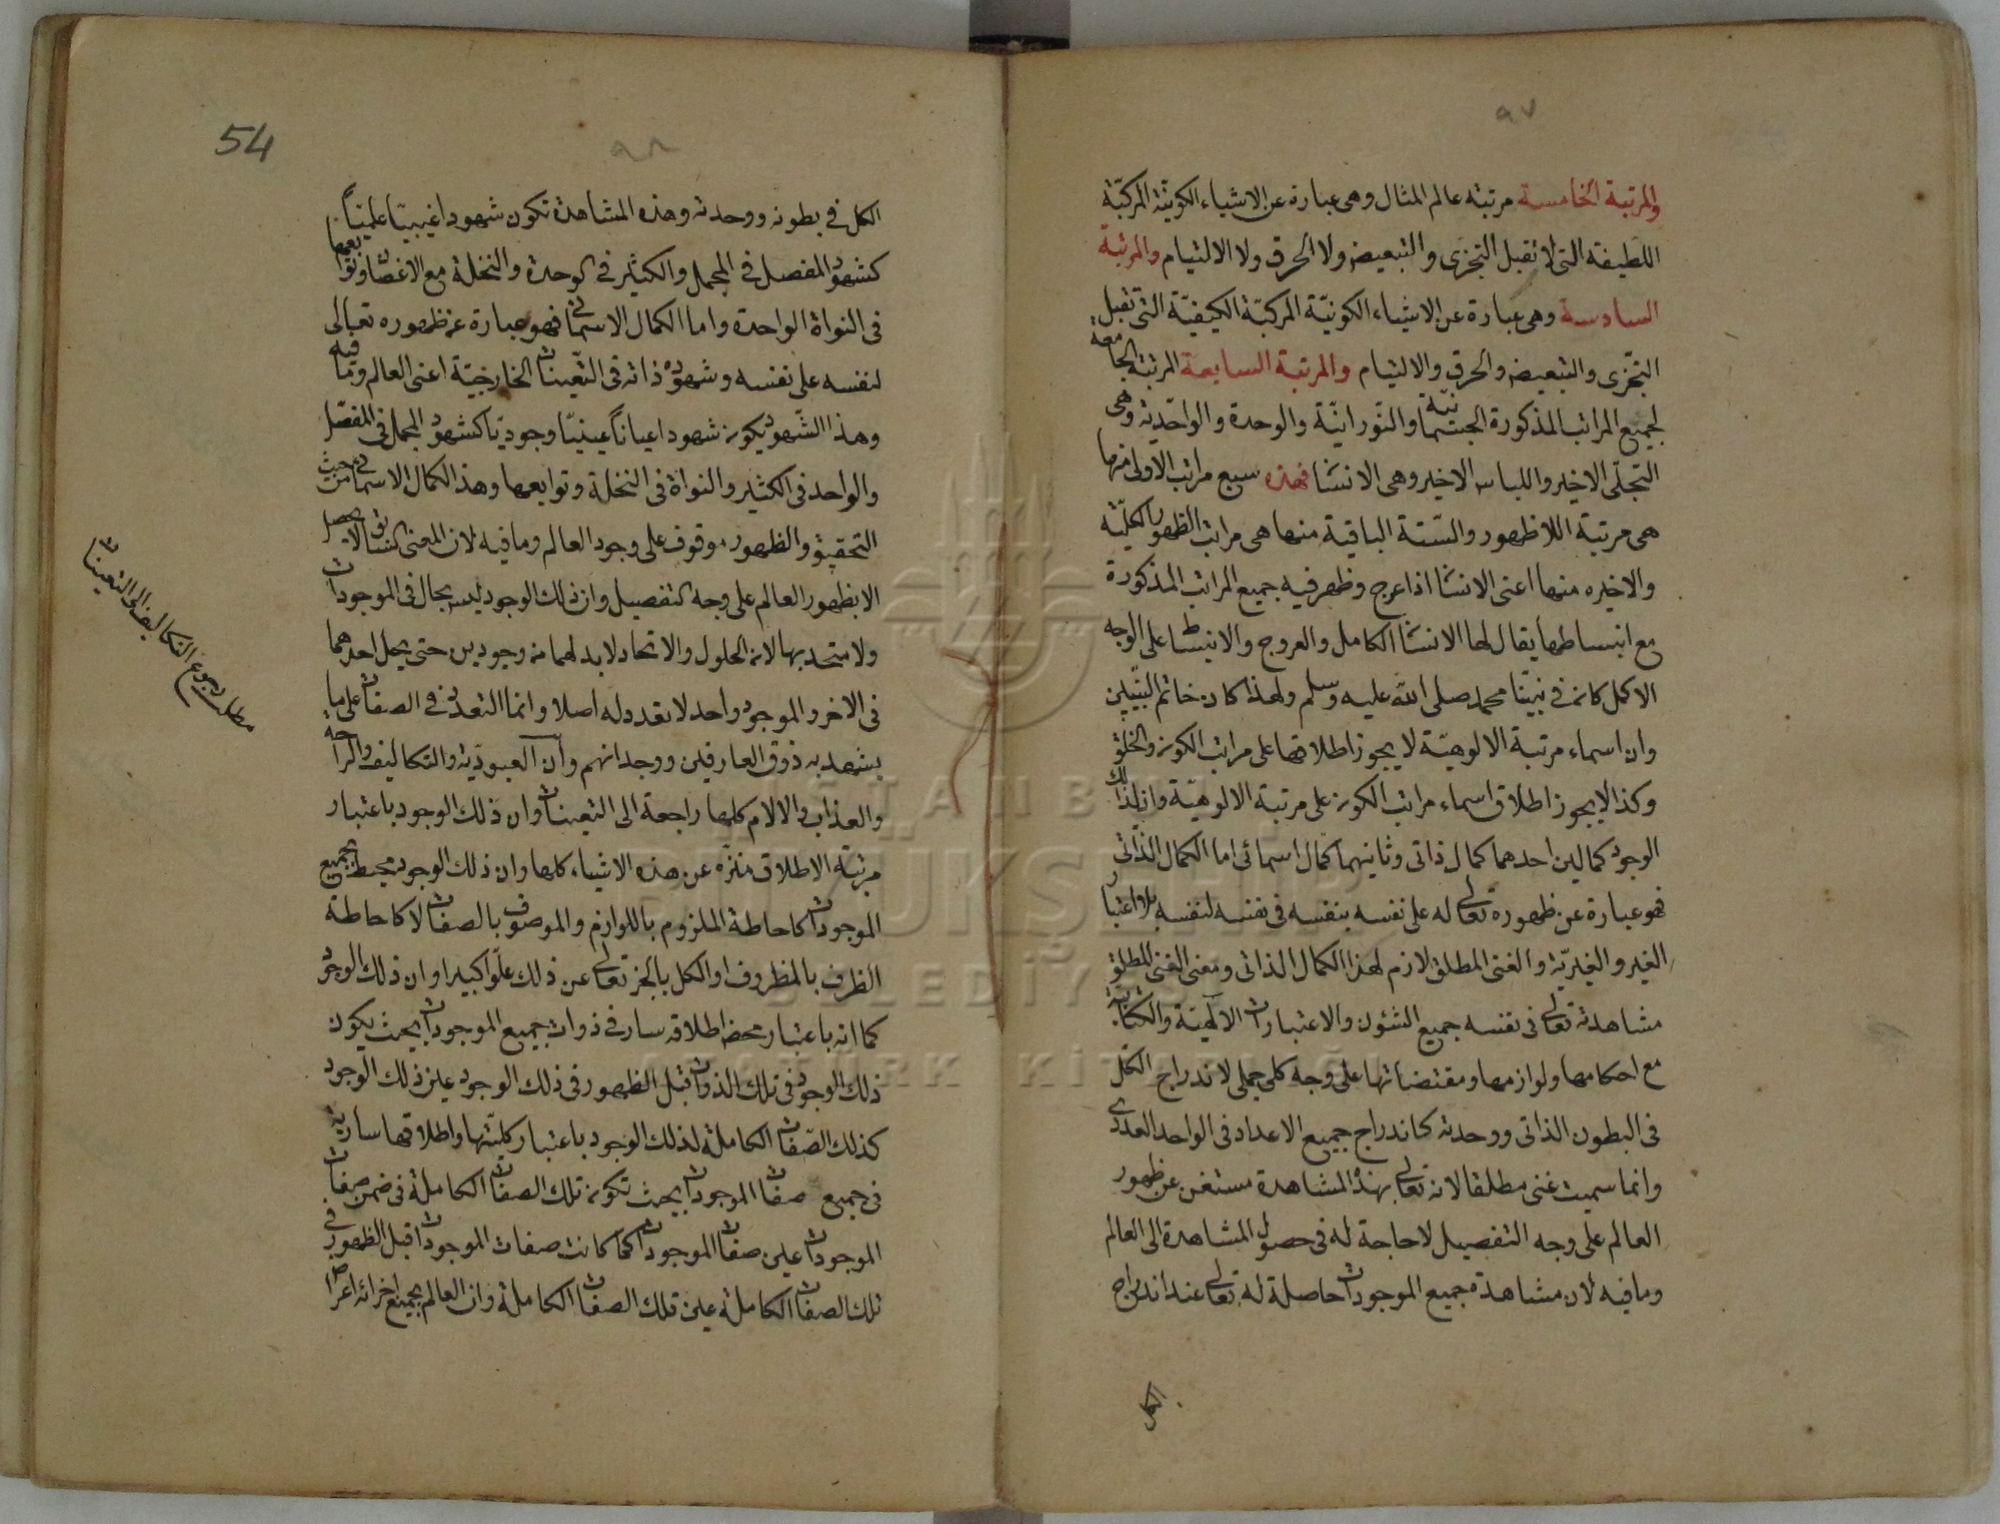 ٩٧
والمرتبة الخامسة مرتبة عالم المثال وهى عبارة عن الاشياء الكونيّة المركبّة
اللطيفة التى لا تقبل التجزى والتبعيض ولا الخرق ولا الالتيام والمرتبة
السادسة وهى عبارة عن الاشياء الكونيّة المركبّة الكيفيّة التى تقبل
التجّزى والتبعيض والخرق والالتيام والمرتبة السابعة المرتبة الجامعة
لجميع المراتب المذكورة الجسمانيّة والنّورانيّة والوحدة والواحّدية وهى
التجلّى الاخير واللباس الاخير وهى الانسان فهذه سبع مراتب الاولى منها
هى مرتبة اللا ظهور والسّتة الباقية منها هى مراتب الظهور الكليّة
والاخيره منها اعنى الانسان اذا عرج وظهر فيه جميع المراتب المذكورة
مع انبساطها يقال لها الانسان الكامل والعروج والانبساط على الوجه
الاكمل كان فى نبيّنا محمد صلى الله عليه وسلم ولهذا كان خاتم النبّيين
وان اسماء مرتبة الالوهيّة لا يجوز اطلاقها على مراتب الكون والخلق
وكذا لا يجوز اطلاق اسماء مراتب الكون على مرتبة الالوهيّة وان لذلك
الوجود كمالين احدهما كمال ذاتى وثانيهما كمال اسمائى اما الكمال الذّاتى
فهو عبارة عن ظهوره تعالى له على نفسه بنفسه فى نفسه لنفسه بلا اعتبار
الغير والغيريّة والغنى المطلق لازم لهذا الكمال الذاتى ومعنى الغنى المطلق
مشاهدته تعالى فى نفسه جميع الشئون والاعتبارات الالهيّة والكيانيّة
مع احكامها ولوازمها ومقتضاتها على وجه كلى جملى لاندراج الكّل
فى البطون الذاتى ووحدته كاندراج جميع الاعداد فى الواحد العددى
وانما سميت غنى مطلقا لانه تعالى بهذه المشاهدة مستغن عن ظهور
العالم على وجه التفصيل لا حاجة له فى حصول المشاهدة الى العالم
وما فيه لان مشاهدة جميع الموجودات حاصلة له تعالى عند اندراج
الكل
54
٩٨
الكل فى بطونه ووحدته وهذه المشاهدة تكون شهودا غيبيّا علميّاً
كشهود المفصل فى المجمل والكثير فى الوحدة والنخلة مع الاغصان وتوابعها
فى النواة الواحدة واما الكمال الاسمائى فهو عبارة عن ظهوره تعالى
لنفسه على نفسه وشهوده ذاته فى التعّينات الخارجيّة اعنى العالم وما فيه
وهذا الشّهود يكون شهودا عياناً عينيّا وجوديّا كشهود المجمل فى المفصّل
والواحد فى الكثير والنواة فى النخلة وتوابعها وهذا الكمال الاسمائى من حيث
التحقيق والظهور موقوف على وجود العالم وما فيه لان المعنى السابق لا يحصل
الا بظهور العالم على وجه التفصيل وان ذلك الوجود ليس بحال فى الموجودات
ولا متحد بها لان الحلول والاتحاد لا بد لهما من وجودين حتى يحل احدهما
فى الاخر والموجود واحد لا تعدد له اصلا وانما التعدد فى الصفات على ما
يشهد به ذوق العارفين ووجدانهم وان العبوديّة والتكاليف والراحة
والعذاب والالام كلها راجعة الى التعينات وان ذلك الوجود باعتبار
مرتبّة الاطلاق منزّه عن هذه الاشياء كلها وان ذلك الوجود محيط بجميع
الموجودات كاحاطة الملزوم باللوازم والموصوف بالصفات لا كاحاطة
الظرف بالمظروف او الكل بالجز تعالى عن ذلك علوّا كبيرا وان ذلك الوجود
كما انه باعتبار محض اطلاقه سار فى ذوات جميع الموجودات بحيث يكون
ذلك الوجود فى تلك الذوات قبل الظهور فى ذلك الوجود عين ذلك الوجود
كذلك الصّفات الكاملة لذلك الوجود باعتبار كليّتها واطلاقها سارية
فى جميع صفات الموجودات بحيث تكون تلك الصفات الكاملة فى ضمن صفات
الموجودات عين صفات الموجودات كما كانت صفات الموجودات قبل الظهور فى
تلك الصفات الكاملة عين تلك الصفات الكاملة وان العالم بجميع اجزائه اعراض
مطلب رجوع التكاليف الى التعينات